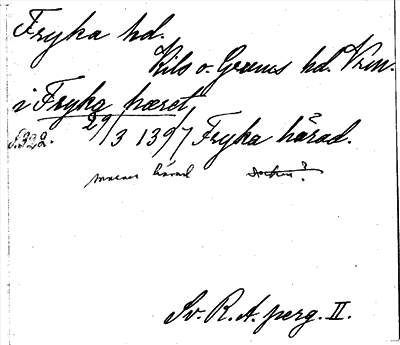 Fryka hd.
Kils o. Grums hd. Vrm.
i Fryka hæret,
S. 322. 29/3 1397 Fryka härad.
härad socken?
Sv. R. A. perg. II.